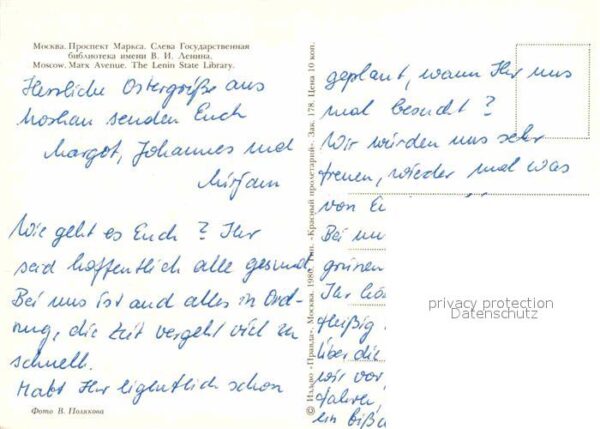 Москва. Проспект Маркса. Слева Государственная
библиотека имени В. И. Ленина.
Moscow. Marx Avenue. The Lenin State Library.
Herzliche Ostergrüße aus
Moskau senden Euch
Margot, Johannes und
Mirjam
Wie geht es Euch? Ihr
seid hoffentlich alle gesund.
Bei uns ist auch alles in Ord-
nung, die Zeit vergeht viel zu
schnell.
Habt Ihr eigentlich schon
Фото В. Полякова
© Изд-во «Правда», Москва. 1980. Тип. «Красный пролетарий». Зак. 178. Цена 10 коп.
geplant, wann Ihr uns
mal besucht?
Wir würden uns sehr
freuen, wieder mal was
von
Bei
grünen
Ihr
fleißig
über die
wir vor,
fahren,
ein
privacy protection
Datenschutz